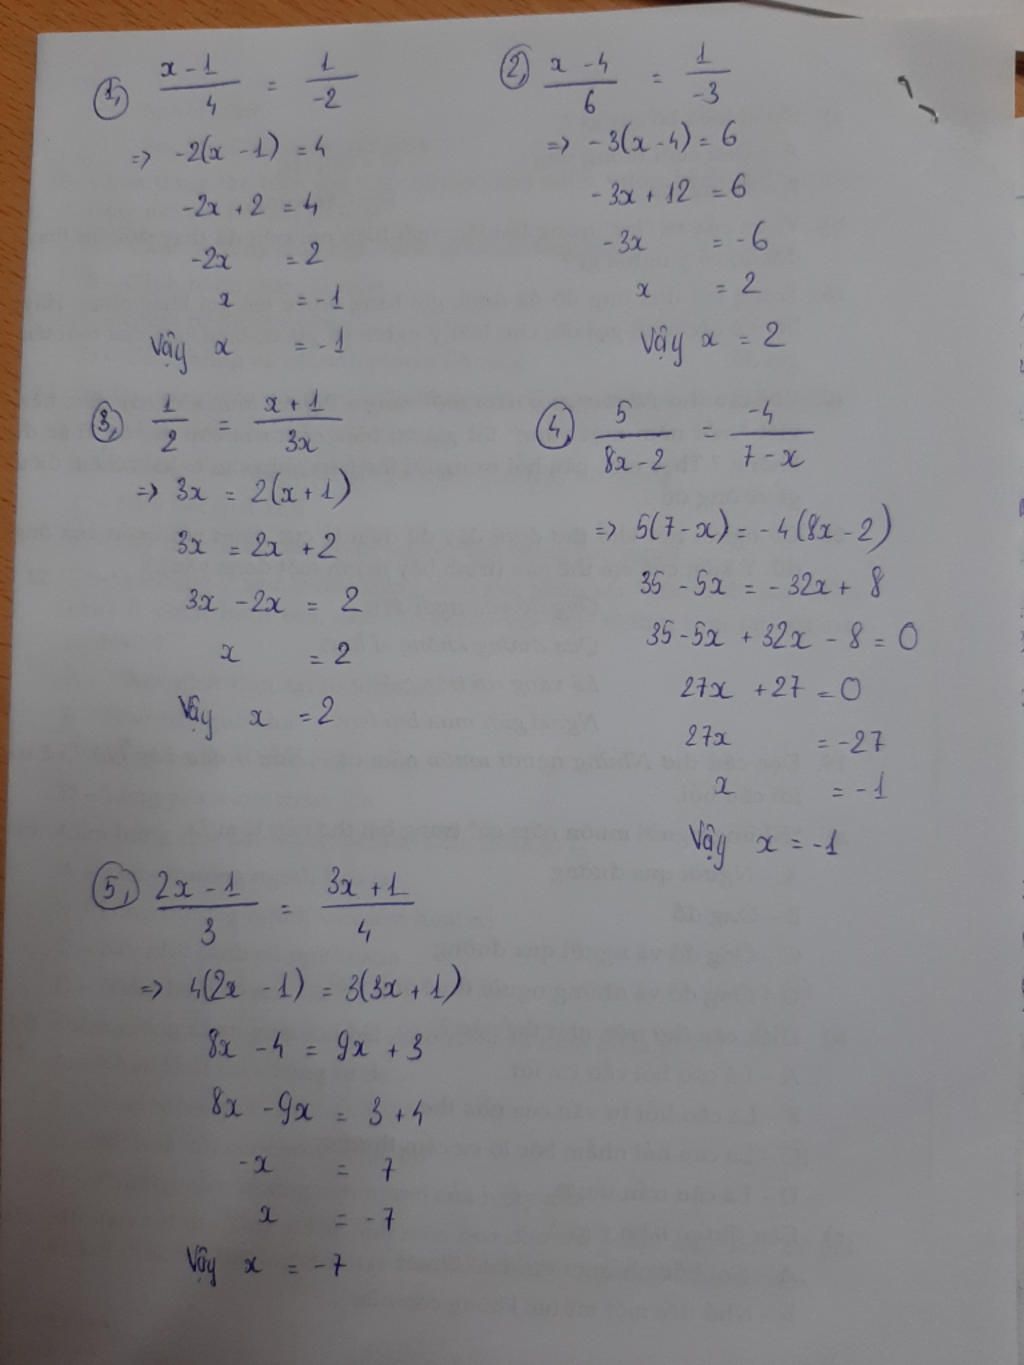 1, x - 1 / 4 = 1 / -2
=> -2(x - 1) = 4
-2x + 2 = 4
-2x = 2
x = -1
Vậy x = -1
2, x - 4 / 6 = 1 / -3
=> -3(x - 4) = 6
-3x + 12 = 6
-3x = -6
x = 2
Vậy x = 2
3, 1 / 2 = x + 1 / 3x
=> 3x = 2(x + 1)
3x = 2x + 2
3x - 2x = 2
x = 2
Vậy x = 2
4, 5 / 8x - 2 = -4 / 7 - x
=> 5(7 - x) = -4(8x - 2)
35 - 5x = -32x + 8
35 - 5x + 32x - 8 = 0
27x + 27 = 0
27x = -27
x = -1
Vậy x = -1
5, 2x - 1 / 3 = 3x + 1 / 4
=> 4(2x - 1) = 3(3x + 1)
8x - 4 = 9x + 3
8x - 9x = 3 + 4
-x = 7
x = -7
Vậy x = -7